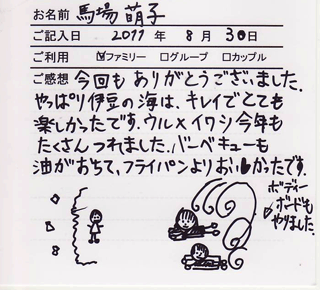 お名前 馬場 萌子
ご記入日 2011 年 8 月 30日
ご利用 ☑ファミリー □グループ □カップル
ご感想 今回も ありがとうございました。
やっぱり伊豆の海は、キレイでとても
楽しかったです。ウルメイワシ今年も
たくさんつれました。バーベキューも
油がおちて、フライパンよりおいしかったです。
ボディー
ボードも
やりました。